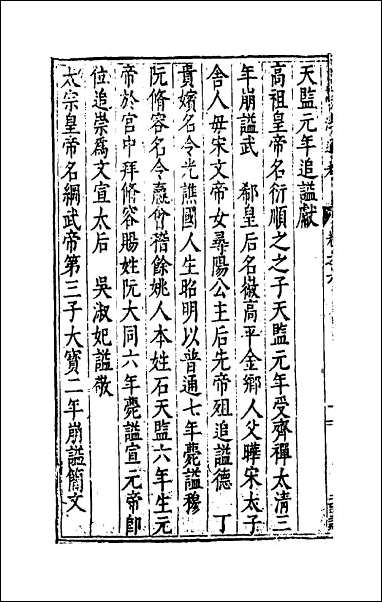 天監元年追謚獻
高祖皇帝名衍順之之子天監元年受齊禪太清三
年崩謚武　郗皇后名徽高平金鄉人父曄宋太子
舍人毋宋文帝女尋陽公主后先帝殂追謚德　丁
貴嬪名令光譙國人生昭明以普通七年薨謚穆
阮脩容名令嬴會稽餘姚人本姓石天監六年生元
帝於宮中拜脩容賜姓阮大同六年薨謚宣元帝即
位追崇爲文宣太后　吳淑妃謚敬
太宗皇帝名綱武帝第三子大寶二年崩謚簡文